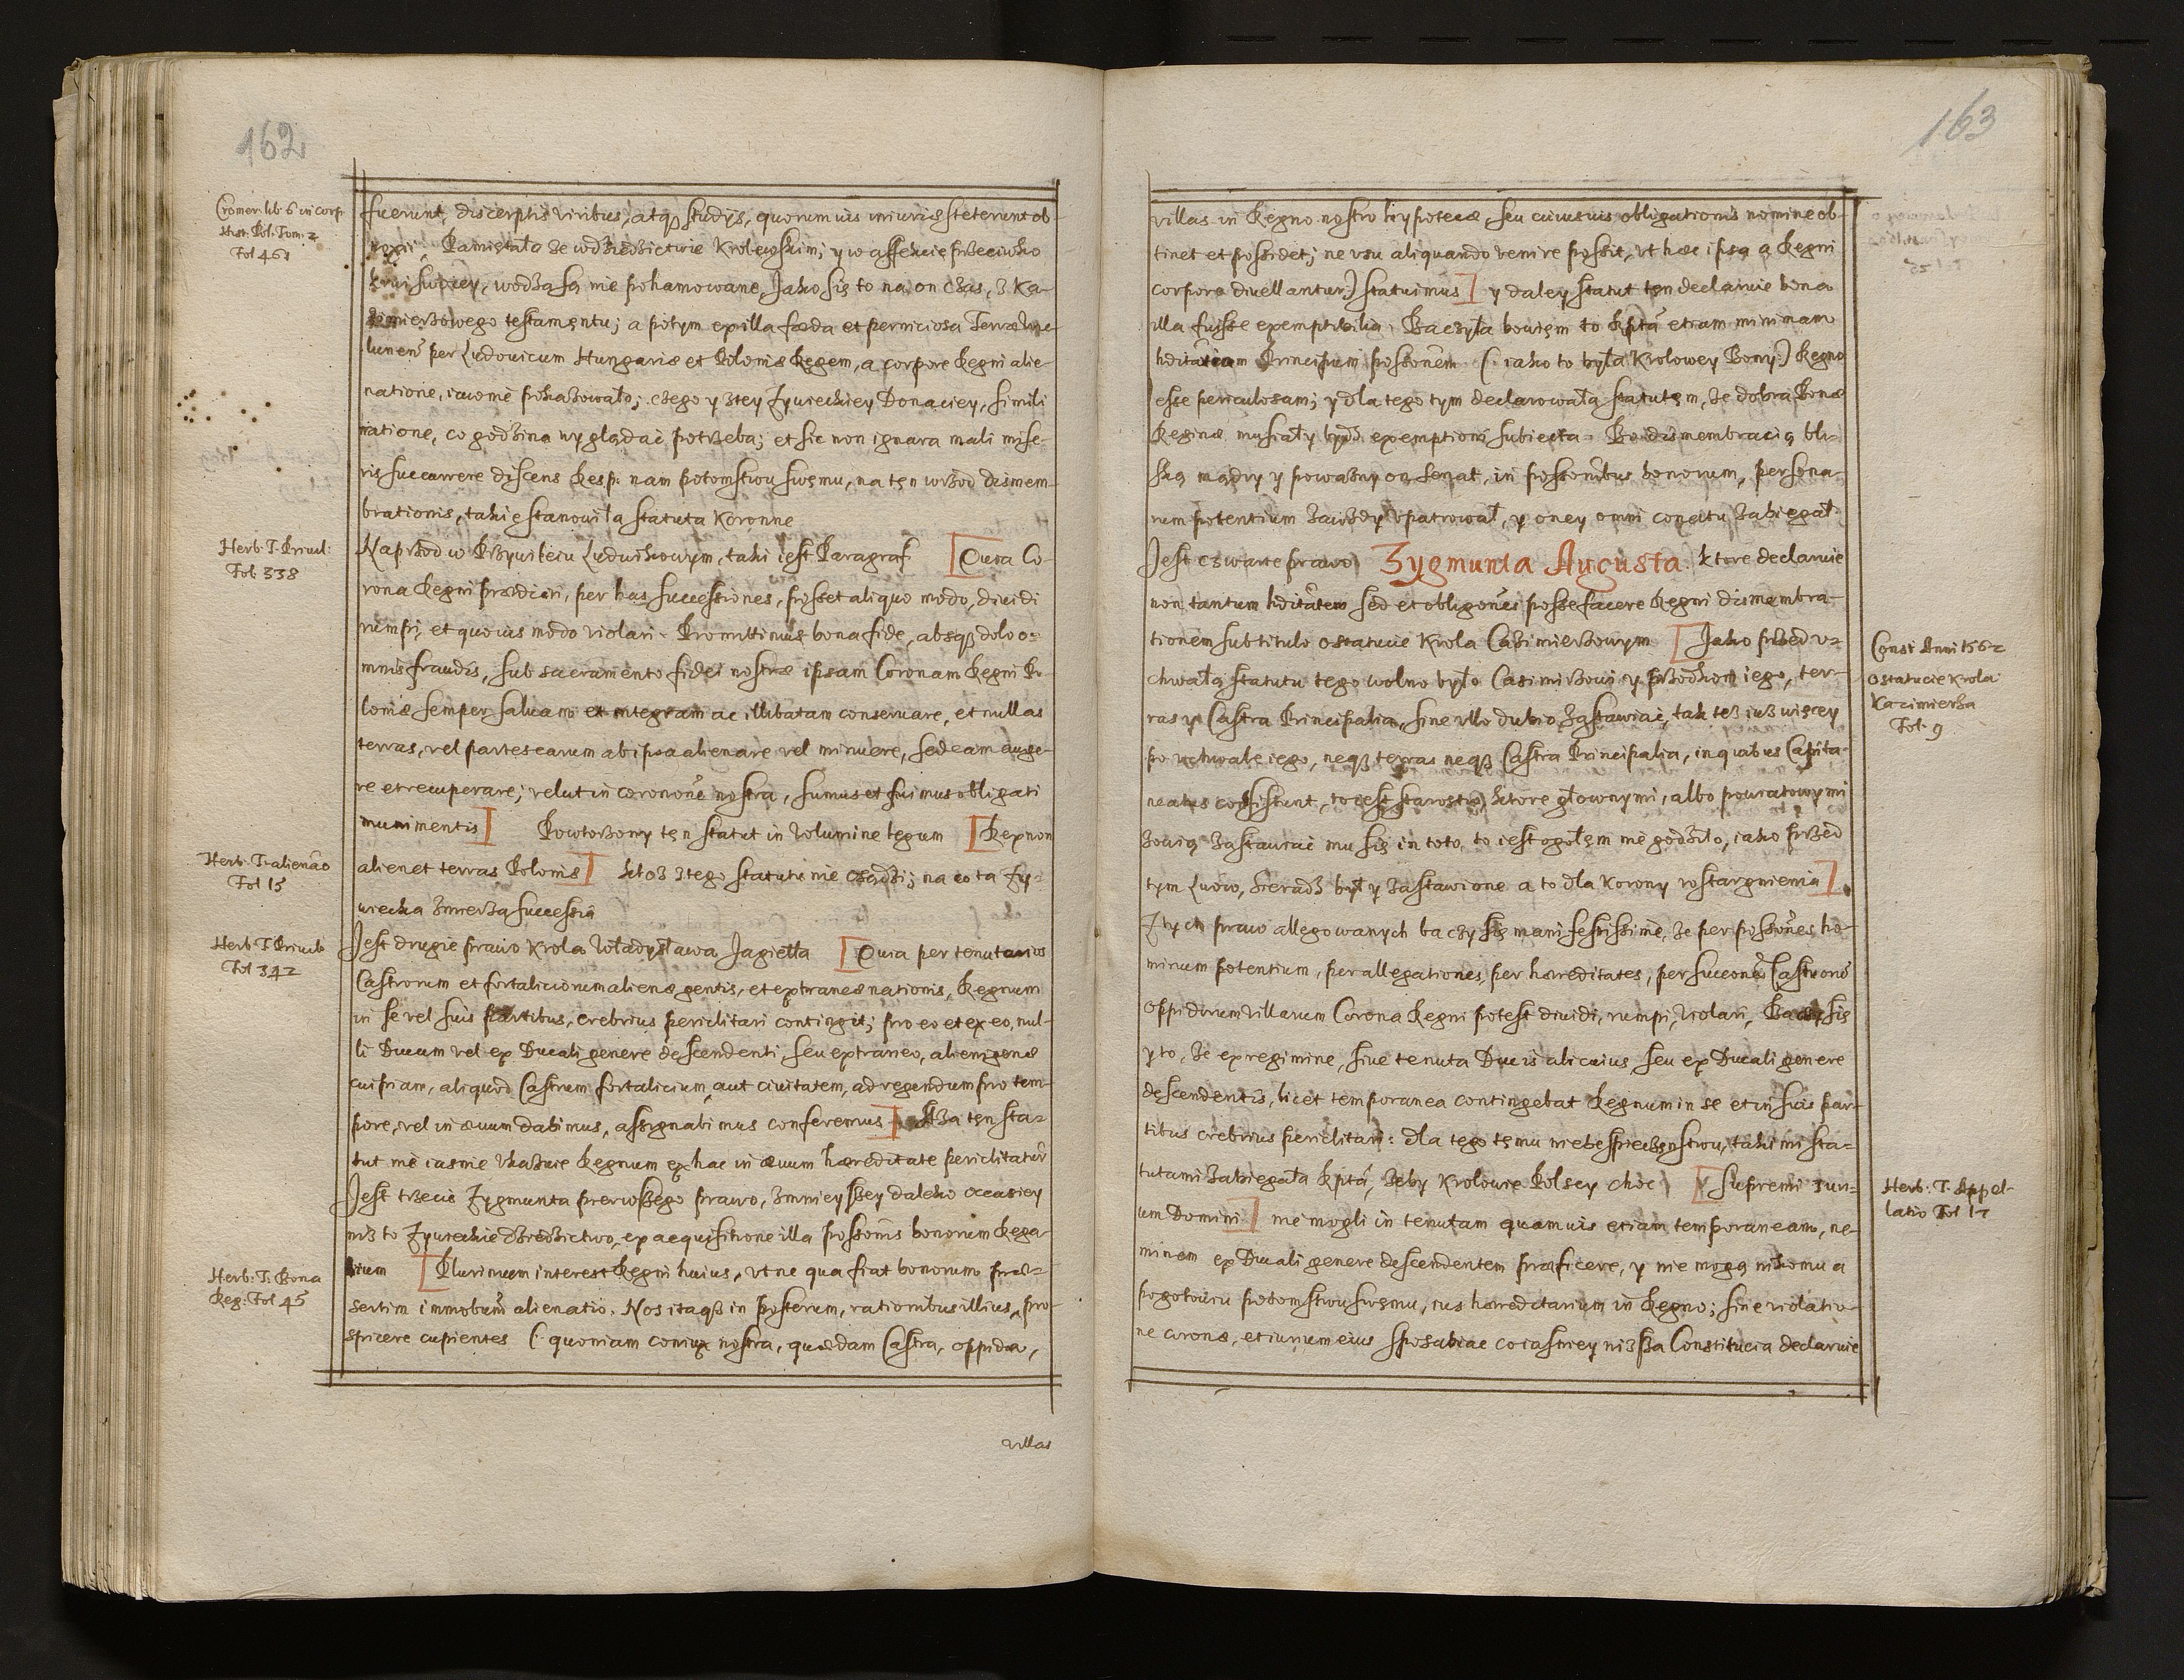 162
Cromer. lib. 6 in corp.
Hist. Pol. Tom. 2
Fol 461
fuerunt, discerptis viribus, atqȝ studijs, quorumuis iniuriæ steterunt ob-
noxii. Pamiętała że w dziedzictwie Krolewskim; y w affekcie przeciwko
krwi swoiey, wodza są nie pohamowane, Jako się to na on czas, z Ka-
zimierzowego testamentu; a potym ex illa fœda et perniciosa Terræ We-
lunen̄ per Ludouicum Hungariæ et Poloniæ Regem, a corpore Regni alie-
natione, iawnie pokazowało; czego y ztey Zywieckiey Donaciey, simili
ratione, co godzina wyglądać potrzeba; et sic non ignara mali mise-
ris succurrere discens Resp: nam potomstwu swęmu, na tęn wrzod dismem-
brationis, takie stanowiła statuta Koronne
Herb. T. Priuil:
Fol. 338
Naprzod w Przywileiu Ludwikowym, taki iest Paragraf [Quia Co-
rona Regni prædicti, per has successiones, posset aliquo modo, diuidi
rumpi, et quouis modo violari. Promittimus bona fide, absqȝ dolo o=
mnis fraudis, sub sacramento fidei nostræ ipsam Coronam Regni Po-
loniæ semper saluam et integram ac illibatam conseruare, et nullas
terras, vel partes earum ab ipsa alienare vel minuere, sed eam auge-
re et recuperare; velut in coronoñe nostra, sumus et fuimus obligati
munimentis] Powtorzony tęn statut in Volumine legum [Rex non
Herb: T. alienão
Fol 15
alienet terras Poloniæ] ktoz z tego statutu nie osądzi; na co ta Zy-
wiecka zmierza successia
Herb T. Priuile
Fol 342
Jest drugie prawo Krola Władysława Jagiełła [Quia per tenutarios
Castrorum et fortaliciorum alienæ gentis, et extraneæ nationis, Regnum
in se vel suis partibus, crebrius periclitari contingit; pro eo et ex eo, nul-
li Ducum vel ex Ducali genere descendenti, seu extraneo, alienigenæ
cuipiam, aliquod Castrum fortalicium aut ciuitatem, ad regendum pro tem-
pore, vel in æuum dabimus, assignabimus conferemus] Aza tęn sta-
tut nie iasnie vkazuie Regnum ex hac in æuum hæreditate periclitatur
Jest trzecie Zygmunta pierwszego prawo, zmnieyszey daleko occasiey
niż to Zywieckie dziedzictwo, ex acquisitione illa possonis bonorum Rega-
Herb: T. Bona
Reg: Fol 45
lium [Plurimum interest Regni huius, vt ne qua fiat bonorum præ=
sertim immobum̄ alienatio. Nos itaqȝ in posterum, rationibus illius, pro-
spicere cupientes (: quoniam coniux nostra, quædam Castra, oppida,
villas
163
villas in Regno nostro hypotecæ seu cuiusuis obligationis nomine ob-
tinet et possidet; ne vsu aliquando venire possit, vt hæc ipsa a Regni
corpore diuellantur:) statuimus] y daley statut tęn declaruie bona
illa fuisse exemptibilia. Baczyła bowięm to Rptâ etiam minimam
hditâriam Principum possonem (: iako to była Krolowey Bony:) Regno
esse periculosam; y dla tego tym declarowała statutęm, że dobra Bonæ
Reginæ musiały bydź exemptioni subiecta. Bo dismembracią bli-
ską mądry y poważny on Senat, in possonibus bonorum, persona-
rum potentium zawżdy vpatrował, y oney omni conatu zabiegał.
Jest czwarte prawo Zygmunta Augusta. Ktore declaruie
non tantum hditâtem sed et obligoñes posse facere Regni dismembra-
Const Anni 1562
o statucie Krola
Kazimierza
Fol. 9
tionem sub titulo o statucie Krola Cazimierzowym [Jako przed v=
chwałą statutu tego wolno było Casimirzowi y przodkom iego, ter-
ras y Castra Principalia, sine vllo dubio zastawiać, tak też iuż więcey
po vchwale iego, neqȝ terras neqȝ Castra Principalia, in quibus Capita-
neatus consistunt, to iest starostw, ktore głownymi, albo powiatowymi
zowią zastawiać mu się in toto, to iest ogołęm nie godziło, iako przed
tym Lwow, Sieradz był y zastawione a to dla Korony rostargnienia].
Z tych praw allegowanych baczy się manifestissimè, że per possones ho-
minum potentium, per allegationes, per hæreditates, per succoñe Castrorō
oppidorum villarum Corona Regni potest diuidi, rumpi, violari, Baczy się
y to, że ex regimine, siue tenuta Ducis alicuius, seu ex Ducali genere
descendentis, licet temporanea contingebat Regnum in se et in suis par-
tibus crebrius periclitari: dla tego tęmu niebespieczęnstwu, takimi sta=
Herb: T. Appel-
latio Fol 17
tutami zabiegała Rptâ, żeby Krolowie Polscy choc [Supremi Iuri-
um Domini] nie mogli in tenutam quamuis etiam temporaneam, ne-
minem ex Ducali genere descendentem præficere, y nie mogą nikomu a
pogotowiu potomstwu swęmu, ius hæreditarium in Regno; sine violatio-
ne coronæ, et iurium eius sposabiac co iasniey niższa Constitucia declaruie